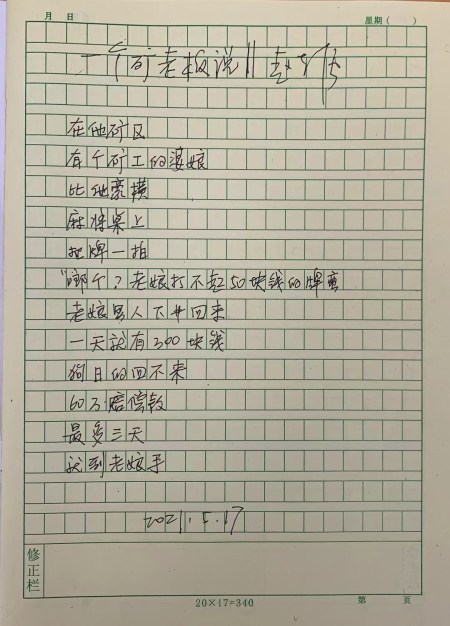 月 日 星期( )
一个矿老板说 || 赵
在他矿区
有个矿工的婆娘
比他豪横
麻将桌上
把牌一拍
"哪个?老娘打不起50块钱的牌
老娘男人下井回来
一天就有300块钱
狗日的回不来
60万赔偿款
最多三天
就到老娘手
2021.5.17
修正栏
20×17=340 第 页